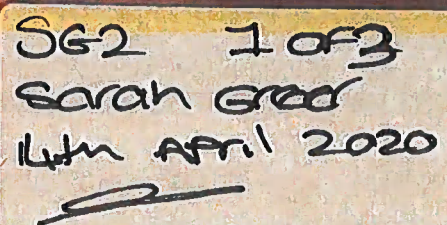 SG2 1 of 3
Sarah Greer
14th April 2020